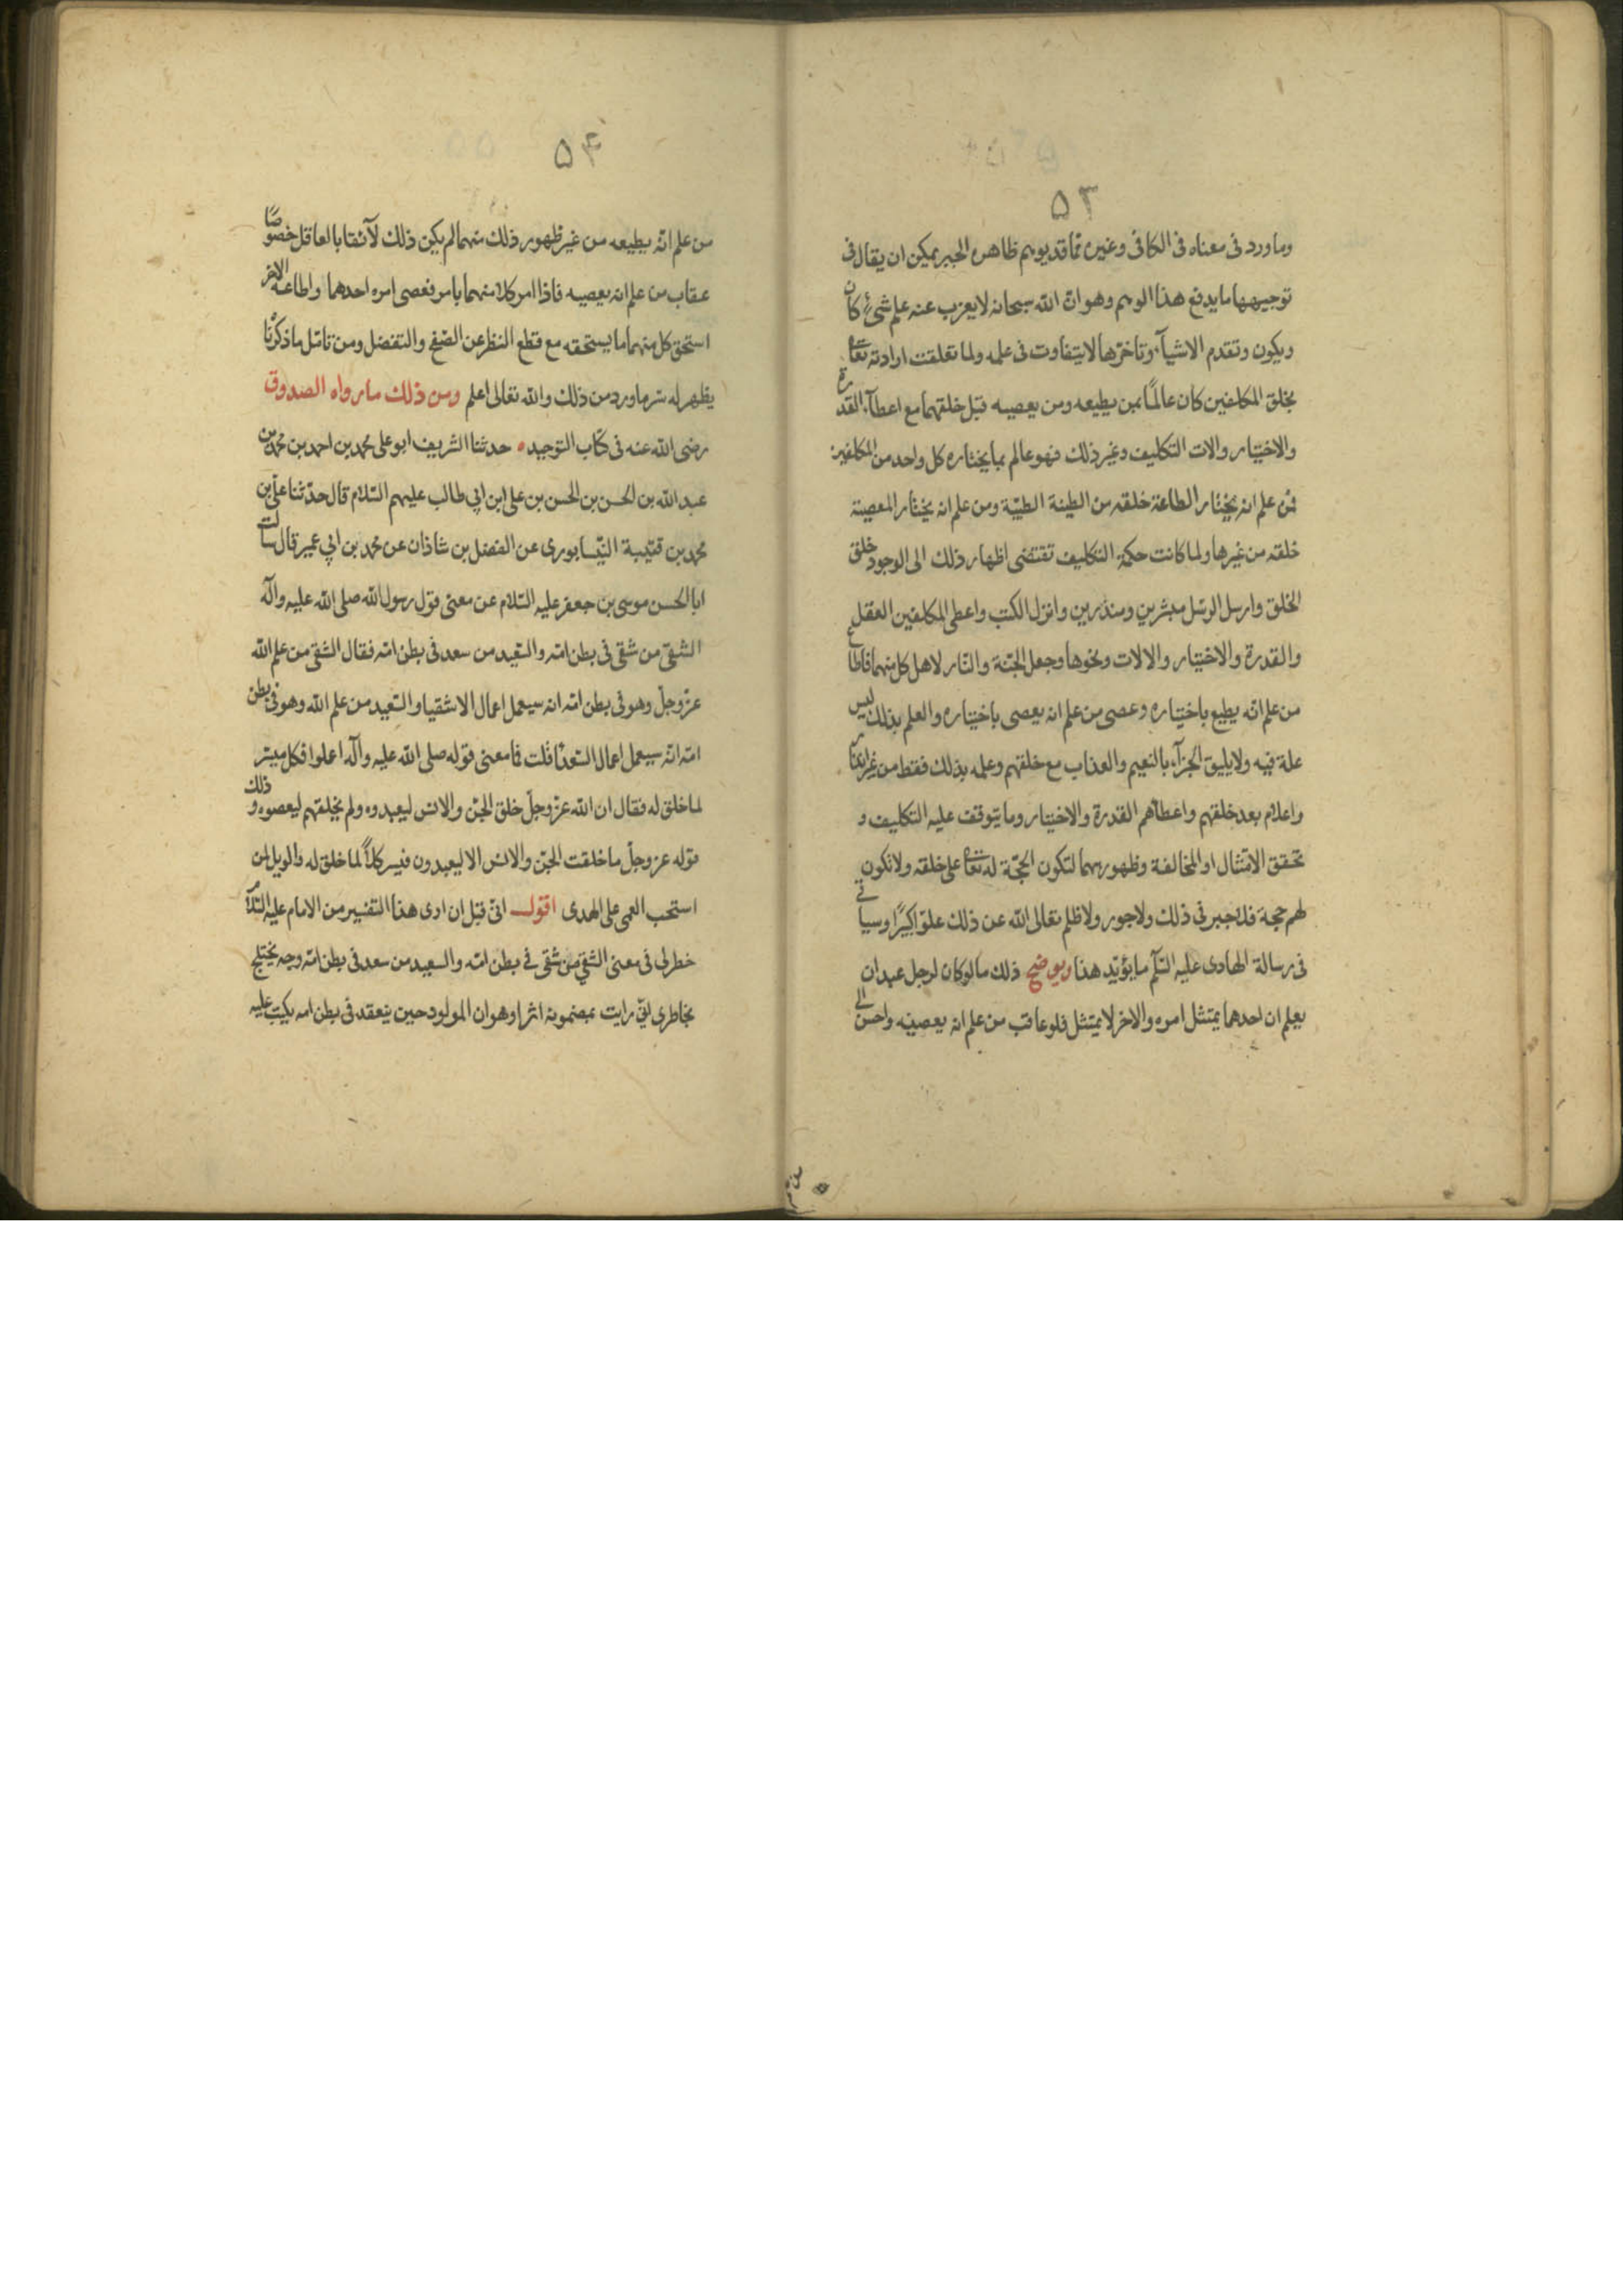 ٥٣
وما ورد فى معناه فى الكافى وغيره مما قد يوهم ظاهره الجبر يمكن ان يقال فى
توجيهها ما يدفع هذا الوهم وهو ان الله سبحانه لا يعزب عنه علم شىء كان
ويكون وتقدم الاشيآء وتأخرها لا يتفاوت فى علمه ولما تعلقت ارادته تعالى
بخلق المكلفين كان عالمًا بمن يطيعه ومن يعصيه قبل خلقهما مع اعطآء القدرة
والاختيار والات التكليف وغير ذلك فهو عالم بما يختاره كل واحد من المكلفين
فمن علم انه يختار الطاعة خلقه من الطينة الطيّبة ومن علم انه يختار المعصية
خلقه من غيرها ولما كانت حكمة التكليف تقتضى اظهار ذلك الى الوجود خلق
الخلق وارسل الرسل مبشرين ومنذرين وانزل الكتب واعطى المكلفين العقل
والقدرة والاختيار والالات ونحوها وجعل الجنّة والنّار لاهل كل منهما فاطاع
من علم انّه يطيع باختياره وعصى من علم انه يعصى باختياره والعلم بذلك ليس
علة فيه ولا يليق الجزآء بالنعيم والعذاب مع خلقهم وعلمه بذلك فقط من غير
واعلام بعد خلقهم واعطآهم القدرة والاختيار وما يتوقف عليه التكليف و
تحقق الامتثال او المخالفة وظهورهما لتكون الحجّة له تعالى على خلقه ولا تكون
لهم حجة فلا جبر فى ذلك ولا جور ولا ظلم تعالى الله عن ذلك علوّا كبيرًا وسياتى
فى رسالة الهادى عليه السّلم ما يؤيّد هذا ويوضح ذلك ما لو كان لرجل عبدان
يعلم ان احدهما يمتثل امره والاخر لا يمتثل فلو عاقب من علم انه يعصيه واحسن الى
٥٤
من علم انّه يطيعه من غير ظهور ذلك منهما لم يكن ذلك لآئقا بالعاقل خصوصًا
عقاب من علم انه يعصيه فاذا امر كلا منهما بامر فعصى امره احدهما واطاعه الاخر
استحق كل منهما ما يستحقه مع قطع النظر عن الصّفح والتفضل ومن تامّل ما ذكرنا
يظهر له سرّ ما ورد من ذلك والله تعالى اعلم ومن ذلك ما رواه الصدوق
رضى الله عنه فى كتاب التوحيد حدثنا الشريف ابو على محمد بن احمد بن محمد بن
عبد الله بن الحسن بن الحسن بن على ابن ابي طالب عليهم السّلام قال حدّثنا علىّ بن
محمد بن قتيبة النّيسابورى عن الفضل بن شاذان عن محمد بن ابي عمير قال سالت
ابا الحسن موسى بن جعفر عليه السّلام عن معنى قول رسول الله صلى الله عليه وآله
الشقىّ من شقى فى بطن امّه والسّعيد من سعد فى بطن امّه فقال الشقى من علم الله
عزّ وجلّ وهو فى بطن امّه انه سيعمل اعمال الاشقيا والسّعيد من علم الله وهو فى بطن
امّه انّه سيعمل اعمال السّعدآ قلت فما معنى قوله صلى الله عليه وآله اعملوا فكل ميسّر
لما خلق له فقال ان الله عزّ وجلّ خلق الجنّ والانس ليعبدوه ولم يخلقهم ليعصوه وذلك
قوله عز وجلّ ما خلقت الجنّ والانس الا ليعبدون فيسر كلاً لما خلق له والويل لمن
استحب العمى على الهدى اقول انى قبل ان ارى هذا التفسير من الامام عليه السّلام
خطر لى فى معنى الشقي من شقى فى بطن امّه والسعيد من سعد فى بطن امّه وجه يختلج
بخاطرى انى رايت بمضمونه اثرا وهو ان المولود حين ينعقد فى بطن امه يكتب عليه